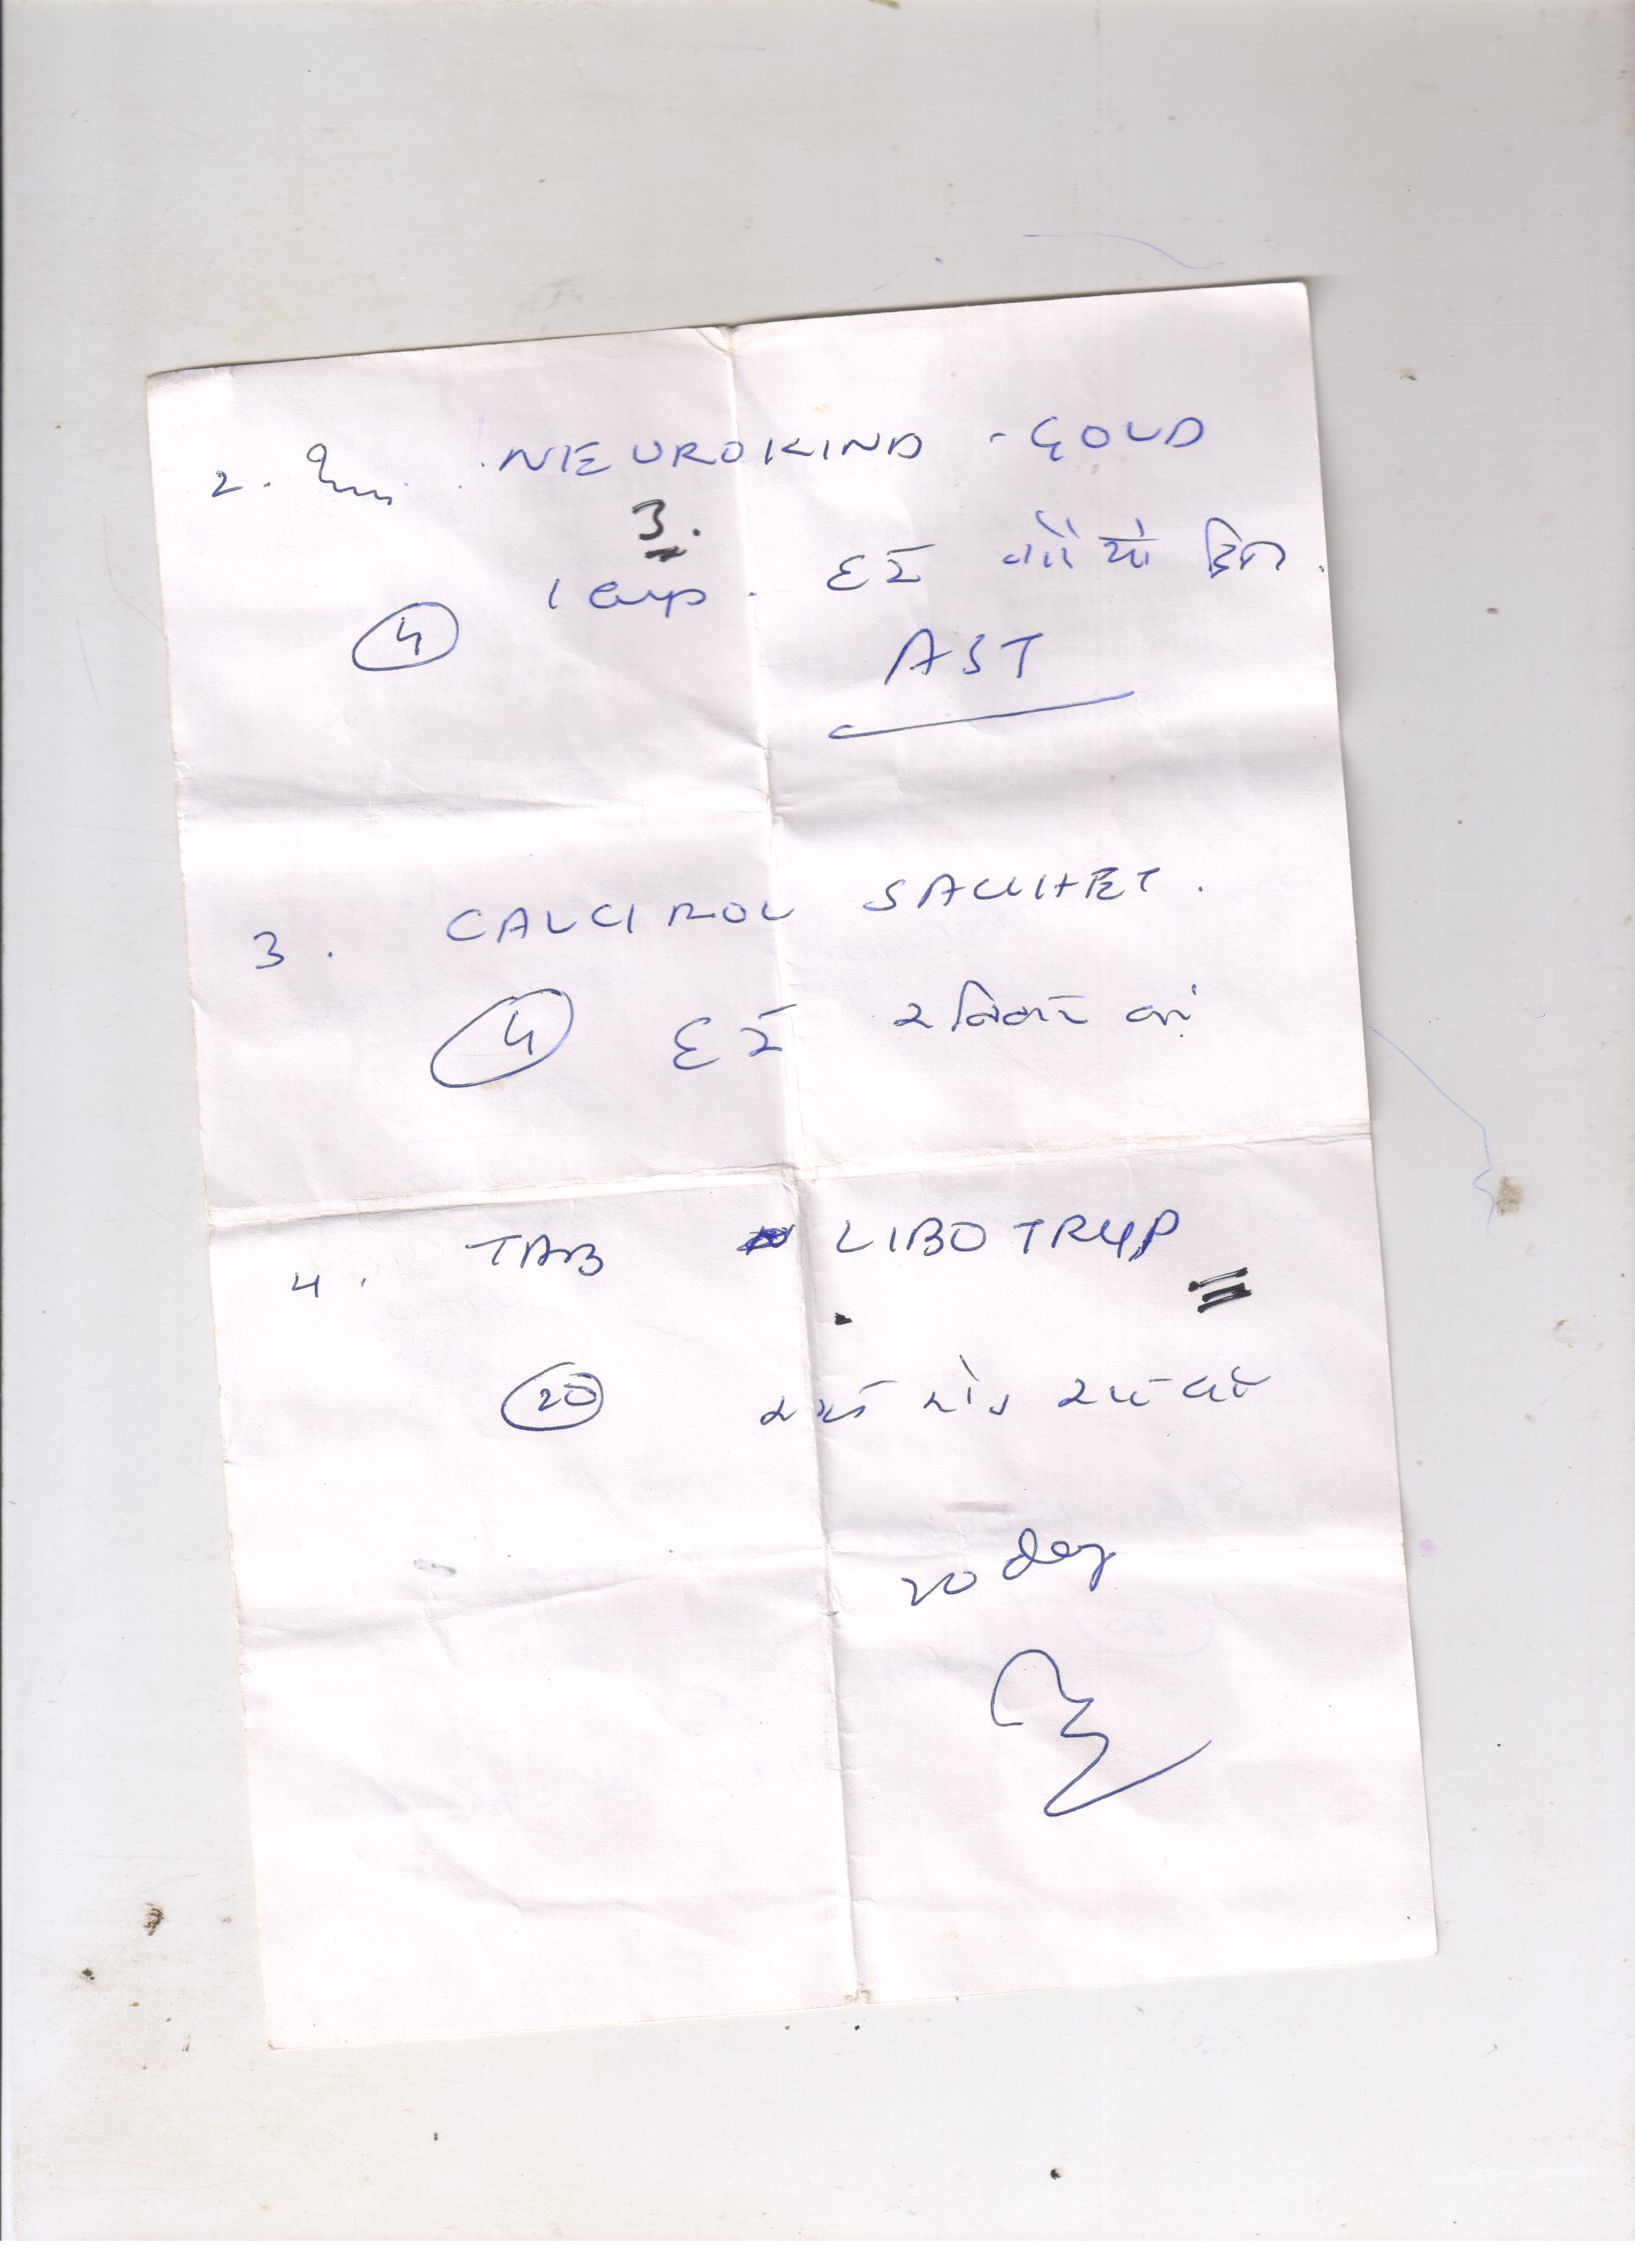 2. Inj. NEUROKIND - GOLD
3.
1 amp. દર ત્રીજા દિવસે
4
AST
3. CALCIROL SACHET.
4 દર રવિવારે
4. TAB LIBOTRYP
20
20 day